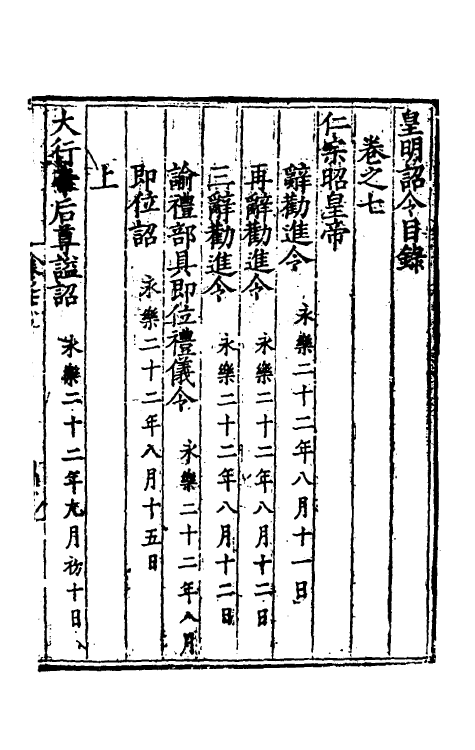 皇明詔令目錄
卷之七
仁宗昭皇帝
辭勸進令 永樂二十二年八月十一日
再辭勸進令 永樂二十二年八月十二日
三辭勸進令 永樂二十二年八月十二日
諭禮部具即位禮儀令 永樂二十二年八月
即位詔 永樂二十二年八月十五日
上
大行 后尊謚詔 永樂二十二年九月初十日